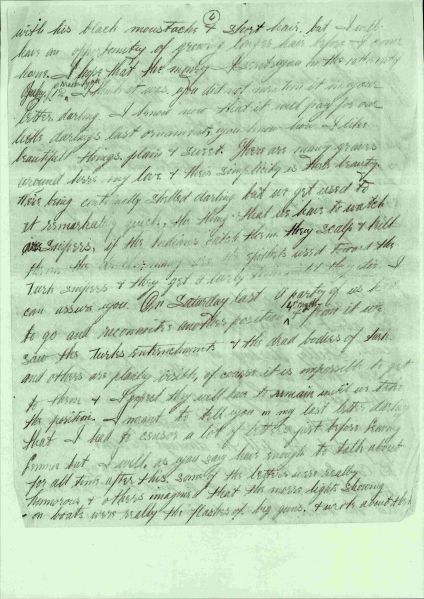 6
with his black moustache & short hair, but I will
have an opportunity of growing longer hair before I come
home. I hope that the money I sent you on the
July I think it was, you did not mention it in your
letter darling. I know now that it will pay for our
little darlings last ornaments you know how I like
beautiful things plain & sweet. There are many graves
around here my love & their simplicity is their beauty
their being continually shelled darling but we get used to
it remarkably quick, the thing that we have to watch
are snipers, if the Indians catch them they scalp & kill
them the
Turk snipers & they get a I
can assure you. On Saturday last a party of us
to go and reconnoitre another position from it we
saw the Turks entrenchments & the dead bodies of Turks
and others are plainly visible, of course it is impossible to get
to them & I they will have to remain until we take
the position. I meant to tell you in my last letter darling
that I had to censor a lot of letters just before leaving
but I will, as you say have enough to talk about
for all time after this, some of the letters were really
humorous & others imagined that the mere lights showing
on boats were really the flashes of big guns, & wrote about